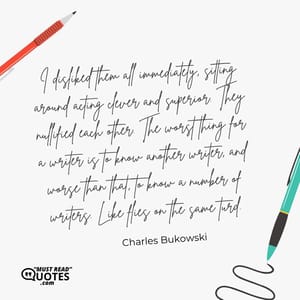 I disliked them all immediately, sitting
around acting clever and superior. They
nullified each other. The worst thing for
a writer is to know another writer, and
worse than that, to know a number of
writers. Like flies on the same turd.
Charles Bukowski
"MUST READ"
QUOTES
.com